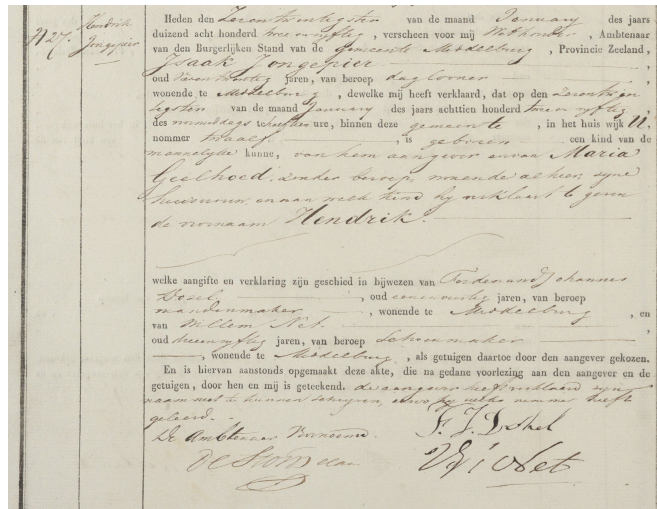 N 27.
Hendrik
Jongepier
Heden den Zevenentwintigsten van de maand January des jaars
duizend acht honderd twee en vyftig, verscheen voor mij Wethouder, Ambtenaar
van den Burgerlijken Stand van de gemeente Middelburg, Provincie Zeeland,
Izaak Jongepier
oud jaren, van beroep
wonende te Middelburg, dewelke mij heeft verklaard, dat op den Zevenentwin
tigsten van de maand January des jaars achttien honderd twee en vyftig,
des namiddags te ure, binnen deze gemeente, in het huis wijk U.
nommer twaalf, is geboren een kind van de
mannelyke kunne, van hem aangever en van Maria
Geelhoed, zonder beroep, wonende alhier, zyne
huisvrouw, en aan welk kind hy verklaart te geven
de voornaam Hendrik.
welke aangifte en verklaring zijn geschied in bijwezen van Ferdinand Johannes
, oud jaren, van beroep
mandenmaker, wonende te Middelburg, en
van Willem
oud jaren, van beroep Schoenmaker
, wonende te Middelburg, als getuigen daartoe door den aangever gekozen.
En is hiervan aanstonds opgemaakt deze akte, die na gedane voorlezing aan den aangever en de
getuigen, door hen en mij is geteekend. de aangever heeft verklaard zyn
naam niet te kunnen schryven, als hy welke nimmer heeft
geleerd.
De Ambtenaar Voornoemd.
F. J.